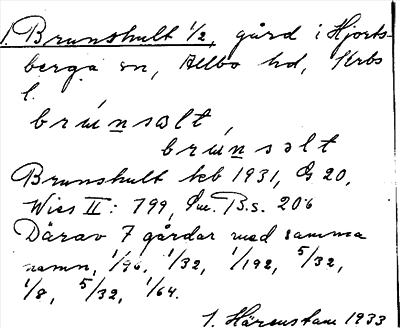 1. Brunshult 1/2, gård i Hjorts-
berga sn, Allbo hd, Krbs
l.
brún̲sɑlt,
brún̲sɔlt
Brunshult kb 1931, G 20,
Wies II: 799, Sv. B.s. 206
Därav 7 gårdar med samma
namn, 1/96, 1/32, 1/192, 5/32,
1/8, 5/32, 1/64.